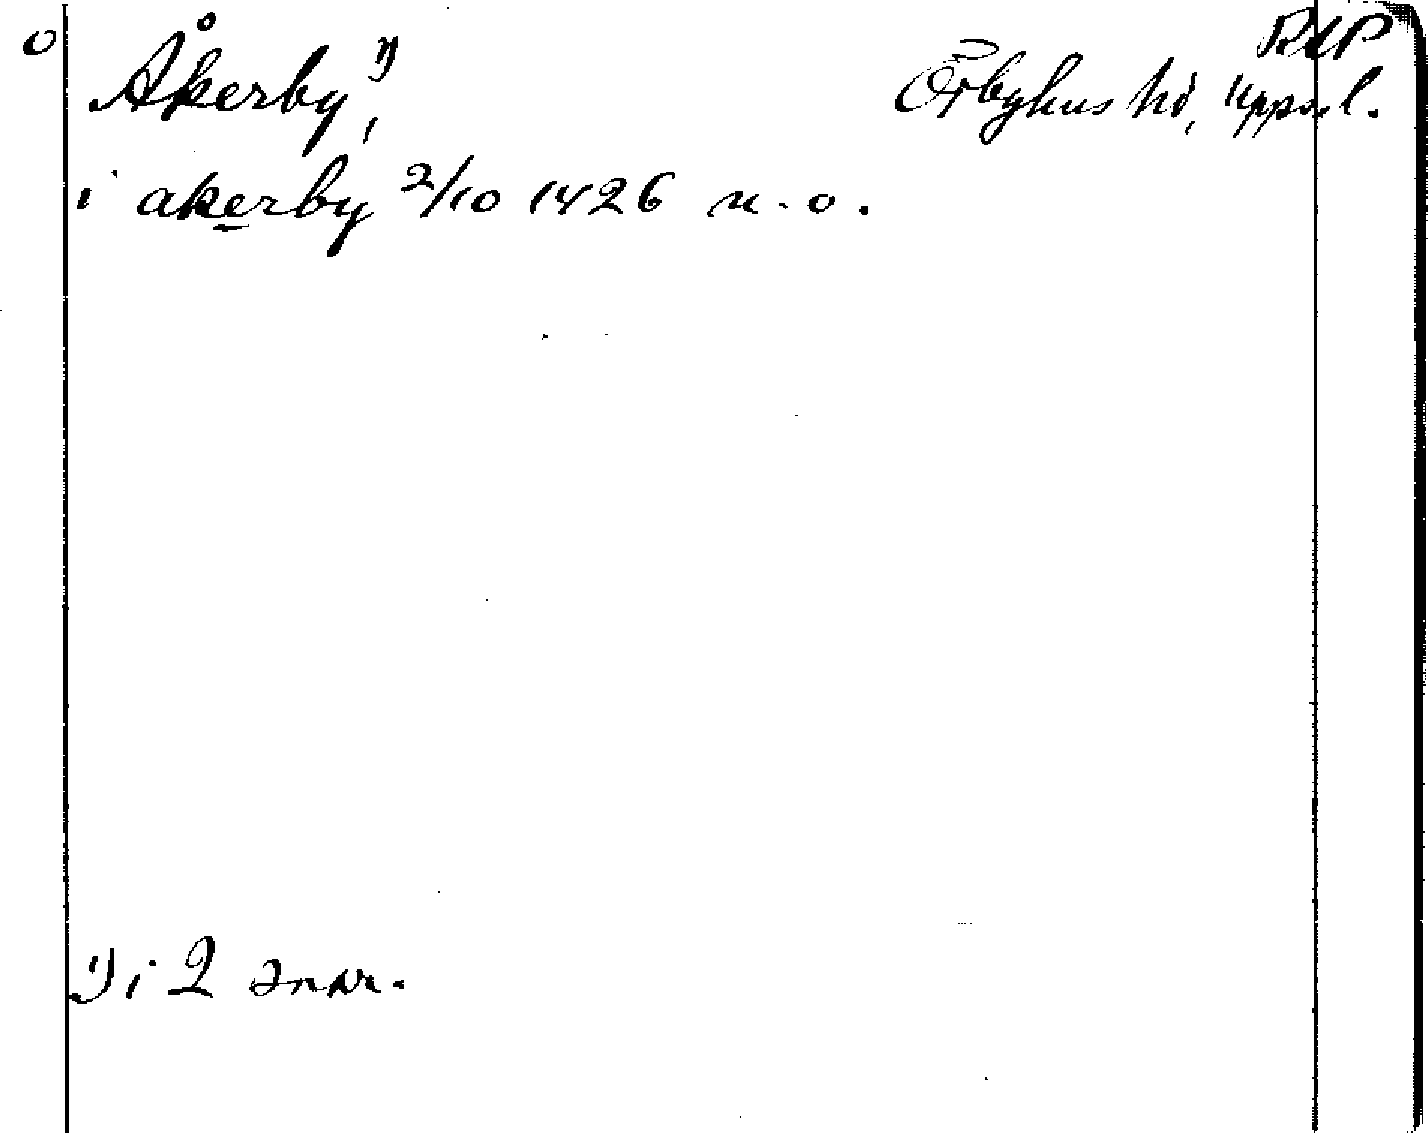 o
RAP
Åkerby,¹⁾
Örbyhus hd, Upps. l.
i akerby 2/10 1426 n. o.
1) i 2 snr.